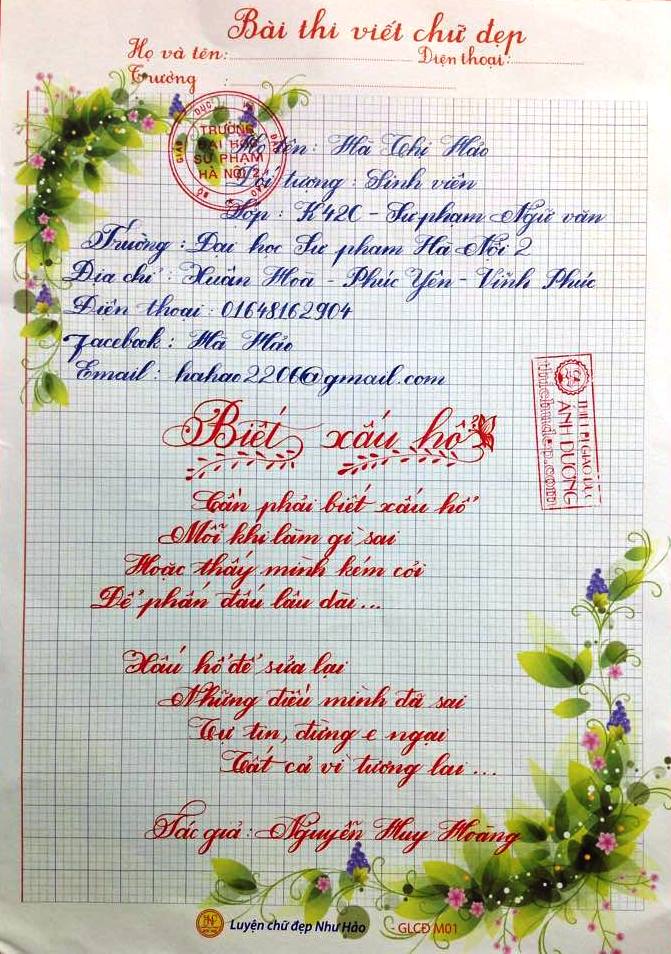 Bài thi viết chữ đẹp
Họ và tên: Điện thoại:
Trường :
TRƯỜNG
ĐẠI HỌC
SƯ PHẠM
HÀ NỘI 2
Họ tên : Hà Thị Hảo
Đối tượng : Sinh viên
Lớp : K42C - Sư phạm Ngữ văn
Trường : Đại học Sư phạm Hà Nội 2
Địa chỉ : Xuân Hoà - Phúc Yên - Vĩnh Phúc
Điện thoại : 01648162904
Facebook : Hà Hảo
Email : hahao2206@gmail.com
ÁNH DƯƠNG
Biết xấu hổ
Cần phải biết xấu hổ
Mỗi khi làm gì sai
Hoặc thấy mình kém cỏi
Để phấn đấu lâu dài...
Xấu hổ để sửa lại
Những điều mình đã sai
Tự tin, đừng e ngại
Tất cả vì tương lai ...
Tác giả : Nguyễn Huy Hoàng
Luyện chữ đẹp Như Hảo - GLCĐ M01